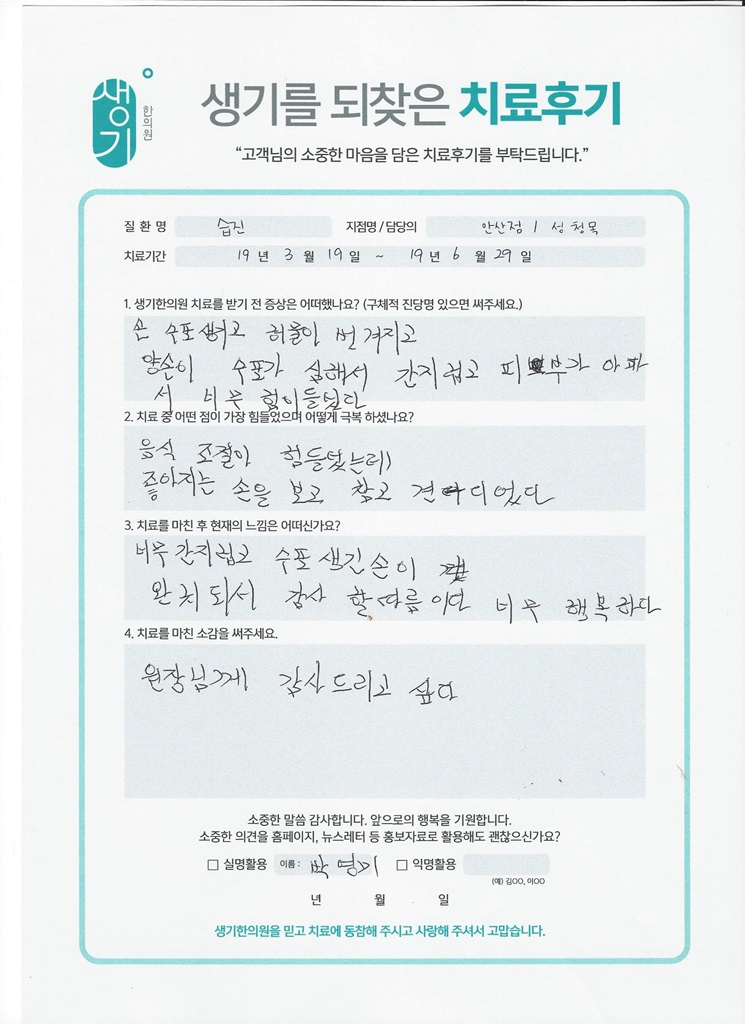 생기
한의원
생기를 되찾은 치료후기
“고객님의 소중한 마음을 담은 치료후기를 부탁드립니다.”
질 환 명 습진 지점명 / 담당의 안산점 / 성청목
치료기간 19 년 3 월 19 일 ~ 19 년 6 월 29 일
1. 생기한의원 치료를 받기 전 증상은 어떠했나요? (구체적 진단명 있으면 써주세요.)
손 수포 생기고 허물이 벗겨지고
양손이 수포가 심해서 간지럽고 피부가 아파
서 너무 힘이들었다
2. 치료 중 어떤 점이 가장 힘들었으며 어떻게 극복 하셨나요?
음식 조절이 힘들었는데
좋아지는 손을 보고 참고 견디었다
3. 치료를 마친 후 현재의 느낌은 어떠신가요?
너무 간지럽고 수포 생긴 손이
완치되서 감사 할 따름이다 너무 행복하다
4. 치료를 마친 소감을 써주세요.
원장님게 감사드리고 싶다
소중한 말씀 감사합니다. 앞으로의 행복을 기원합니다.
소중한 의견을 홈페이지, 뉴스레터 등 홍보자료로 활용해도 괜찮으신가요?
□ 실명활용 이름 : 박영기 □ 익명활용
(예) 김OO, 이OO
년 월 일
생기한의원을 믿고 치료에 동참해 주시고 사랑해 주셔서 고맙습니다.